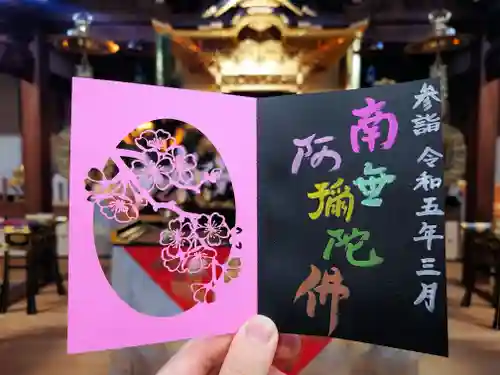 参詣 令和五年三月
南無
阿弥陀仏